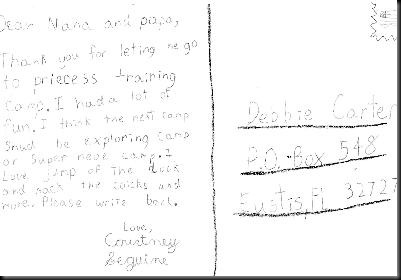 Dear Nana and papa,
Thank you for leting me go
to priecess training
camp. I had a lot of
fun. I think the next camp
Snud be exploring camp
or Super neoe camp. I
Love jump of the dock
and the and
more. Please write back.
Love,
Courtney
Seguine
Debbie Carter
P.O. Box 548
Eustis, Fl 32727